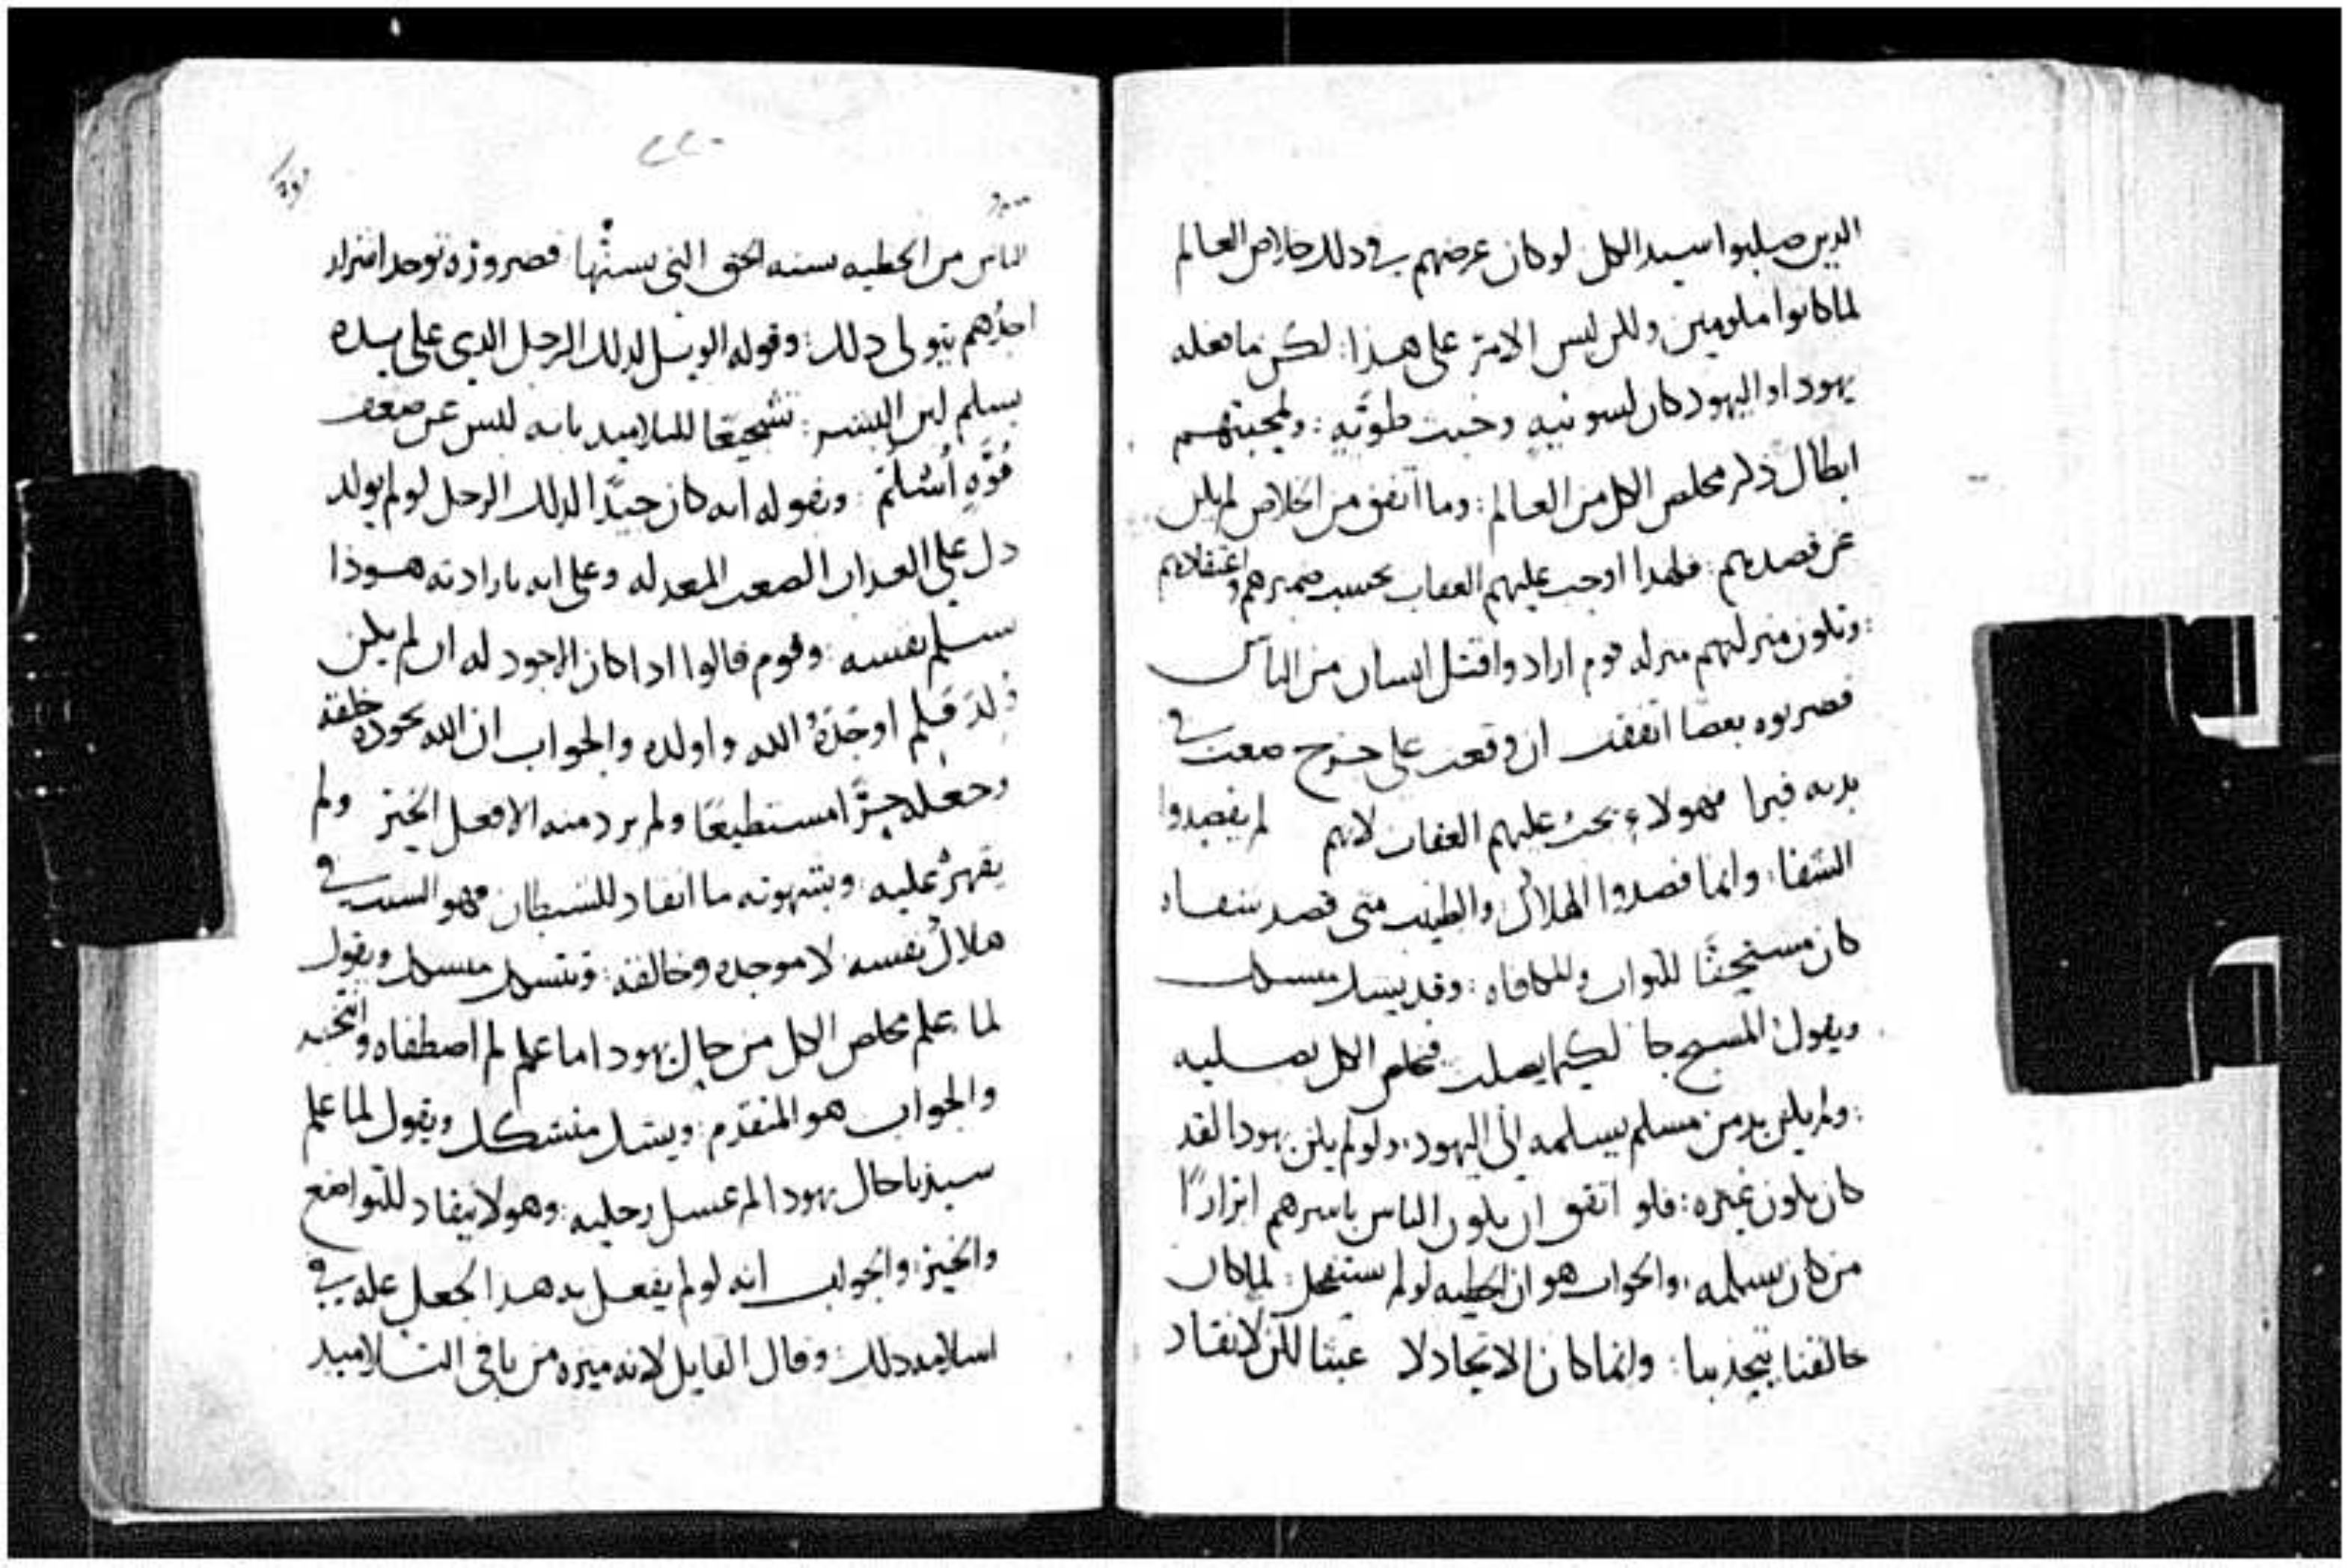 الدين صلبوا سيد الكل لو كان عرضهم في دلك خلاص العالم
لما كانوا ملومين ولكن ليس الامر على هذا: لكن ما فعله
يهودا واليهود كان لسو نيه وخبت طويه: ولمحبتهم
ابطال ذكر مخلص الكل من العالم: وما اتفق من الخلاص لم يكن
عن قصدهم: فلهدا اوجب عليهم العقاب بحسب ضميرهم واعتقادهم
: وتكون منزلتهم منزله قوم ارادوا قتل انسان من الناس
فضربوه بعصا اتفقت ان وقعت على جرح صعب في
بدنه فبرا فهولاء يجب عليهم العقاب لانهم لم يقصدوا
الشفا: وانما قصدوا الهلاك: والطبيب متى قصد شفاه
كان مستحقا للثواب وللمكافاه: وقد يتسكك متسكك
ويقول المسيح جا لكيما يصلب فيخلص الكل بصلبه
: ولم يكن بد من مسلم يسلمه الى اليهود. ولو لم يكن يهودا لقد
كان يكون غيره: فلو اتفق ان يكون الناس باسرهم ابرارًا
من كان يسلمه. والجواب هو ان الخطيه لو لم ستفحل: لما كان
خالقنا يتحد بنا: وانما كان الاتحاد لا عبثا لكن لانقاد
٢٢٠
الناس من الخطيه بسنه الحق التي يسنها: فضروره توحد اشرار
احدهم يتولى دلك: وقوله الويل لدلك الرجل الدي على يده
يسلم ابن البشر: تشجيعًا للتلاميد بانه ليس عن ضعف
قوهٍ اُسْلمَ: وبقوله انه كان جيدًا لدلك الرجل لو لم يولد
دل على العداب الصعب المعد له وعلى انه بارادته هودا
سلم نفسه: وقوم قالوا ادا كان الاجود له ان لم يكن
وُلدَ فلم اوجَدَهُ الله واولده والجواب ان الله بجوده خلقه
وجعله حرًا مستطيعًا ولم يرد منه الا فعل الخير ولم
يقهرهُ عليه: وبشهوته ما انقاد للشيطان فهو السبب في
هلاك نفسه لا موجده وخالقه: ويتسكك متسكك ويقول
لما علم مخلص الكل من حال يهودا ما علم لم اصطفاه وانتخبه
والجواب هو المتقدم: ويتسكك متشكك ويقول لما علم
سيدنا حال يهودا لم غسل رجليه: وهو لا ينقاد للتواضع
والخير: والجواب انه لو لم يفعل به هدا لجعل عله في
اسلامه دلك: وقال القايل لانه ميزه من باقي التلاميد